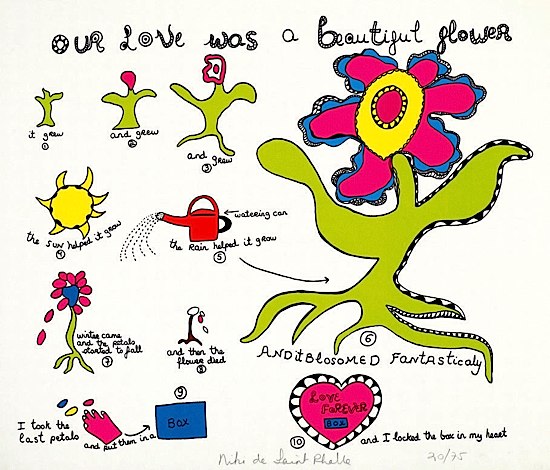 OUR LOVE was a beautiful flower
it grew
1
and grew
2
and grew
3
the sun helped it grow
4
watering can
the RAIN helped it grow
5
6
ANDitBlosomED FANTASTICALY
winter came
and the petals
started to fall
7
and then the
flower died
8
I took the
last petals
and put them in a
9
BOX
LOVE
FOREVER
BOX
10
and I locked the box in my heart
Niki de Saint Phalle
20/75